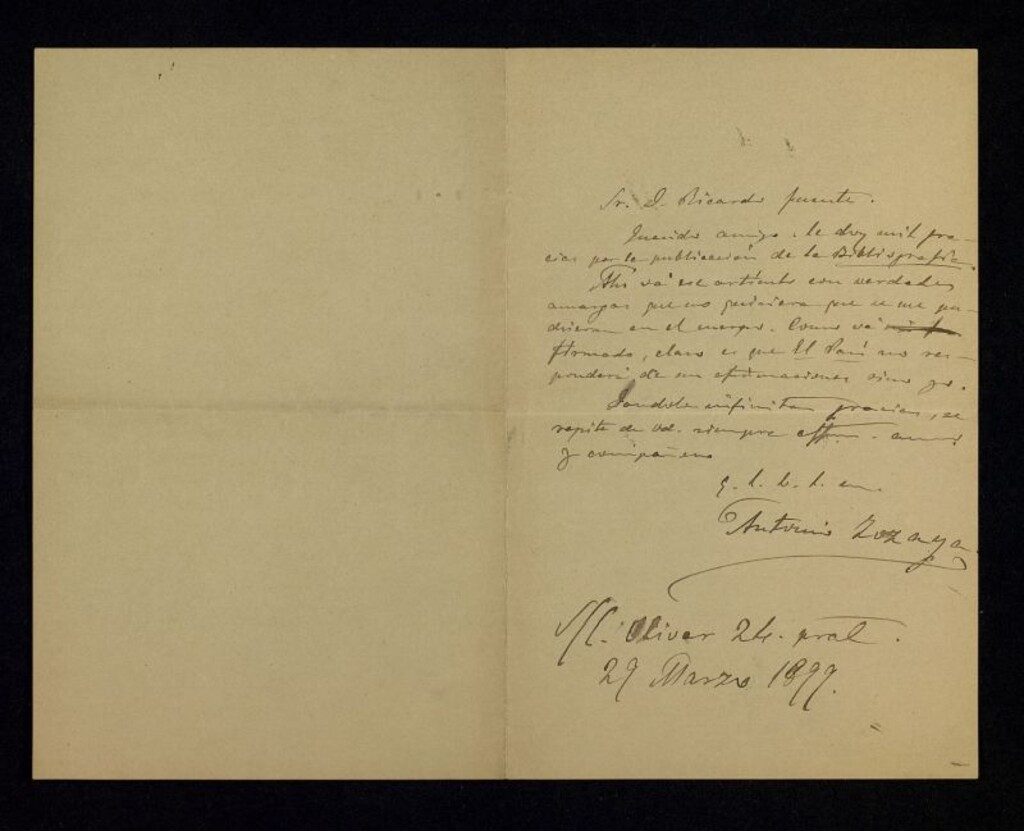 Sr. D. Ricardo Fuente.
Querido amigo: le doy mil gra-
cias por la publicación de la Bibliografía.
Ahí vá ese artículo con verdades
amargas que no quisiera que se me pu-
drieran en el cuerpo. Como vá
firmado, claro es que El País no res-
ponderá de mis afirmaciones sino yo.
Dandole infinitas gracias, se
repite de Vd. siempre affmo. amigo
y compañero
q. l. b. l. m.
Antonio Zozaya
S/C. Olivar 24. pral.
29 Marzo 1899.